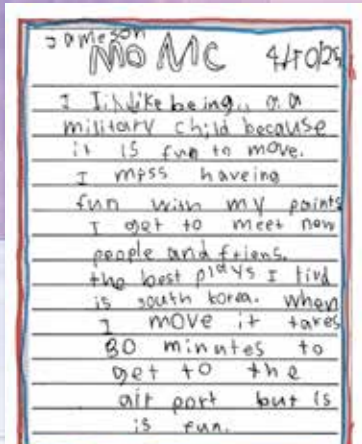 Jameson
MOMC 4/10/25
I like being a a
military child because
it is fun to move.
I mess haveing
fun with my paints
I get to meet new
people and friens.
the best plays I livd
is south korea. when
I move it takes
30 minutes to
get to the
air port but is
is fun.